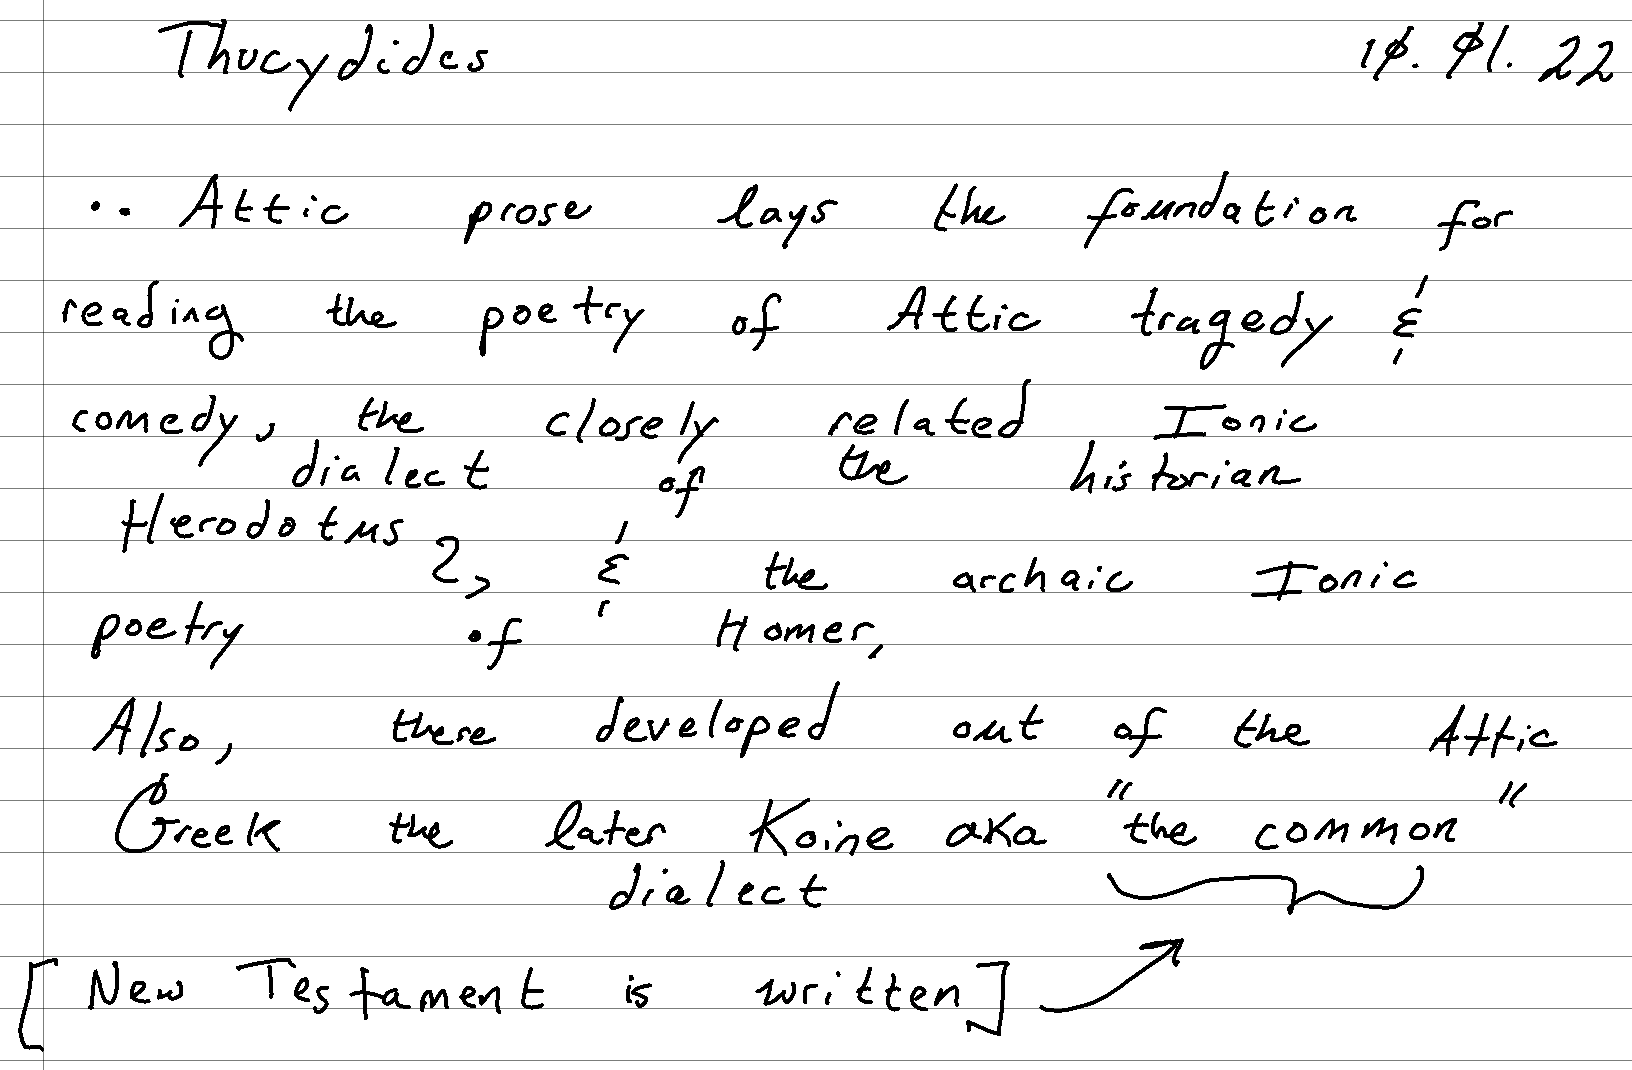 Thucydides 10. 01. 22
·. Attic prose lays the foundation for
reading the poetry of Attic tragedy &
comedy, the closely related Ionic
dialect of the historian
Herodotus 2, & the archaic Ionic
poetry of Homer,
Also, there developed out of the Attic
Greek the later Koine aka "the common"
dialect
[New Testament is written]